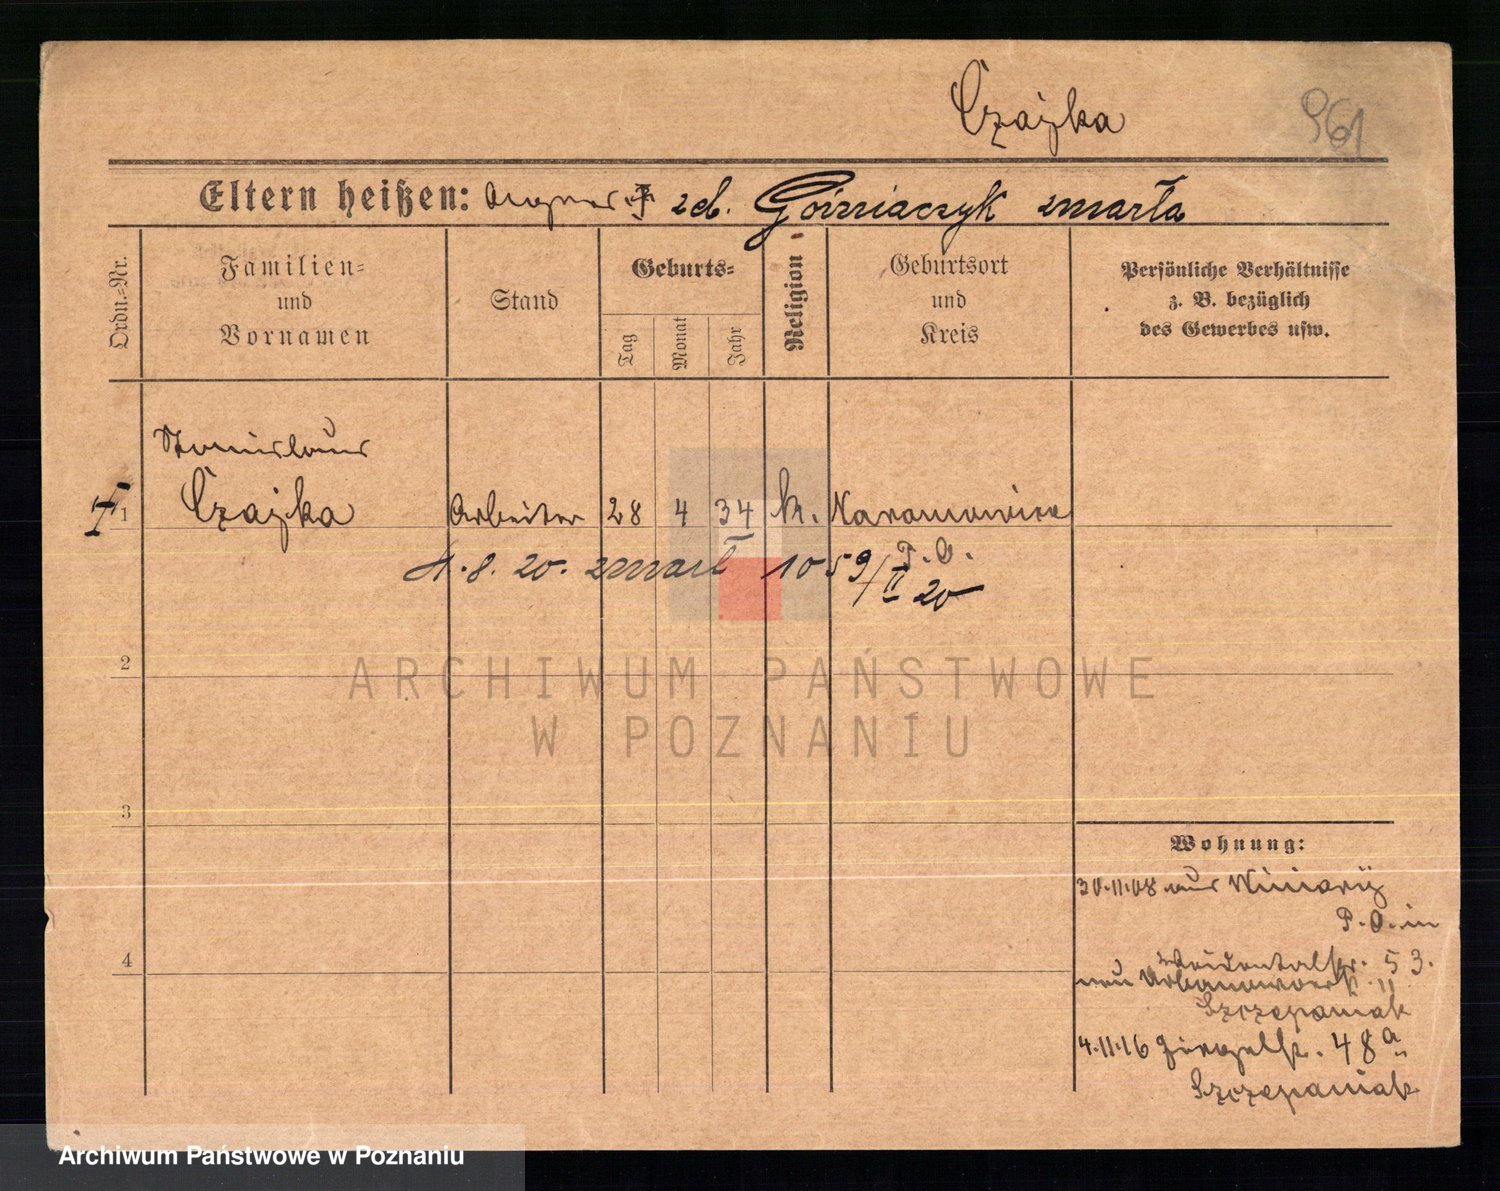 Czajka
961
Eltern heißen: zd. Górniaczyk zmarła
Ordn.=Nr.
Familien=
und
Vornamen
Stand
Geburts=
Tag
Monat
Jahr
Religion
Geburtsort
und
Kreis
Persönliche Verhältnisse
z. B. bezüglich
des Gewerbes usw.
Stanislaus
1 Czajka Arbeiter 28 4 34 k. Naramowice
P. O.
4.8.20. zmarł 1059/II 20
2
3
4
Wohnung:
20.11.08 aus Winiary
P. O. in
53.
neu 11
Szczepaniak
4.11.16 48a
Szczepaniak
ARCHIWUM PAŃSTWOWE
W POZNANIU
Archiwum Państwowe w Poznaniu